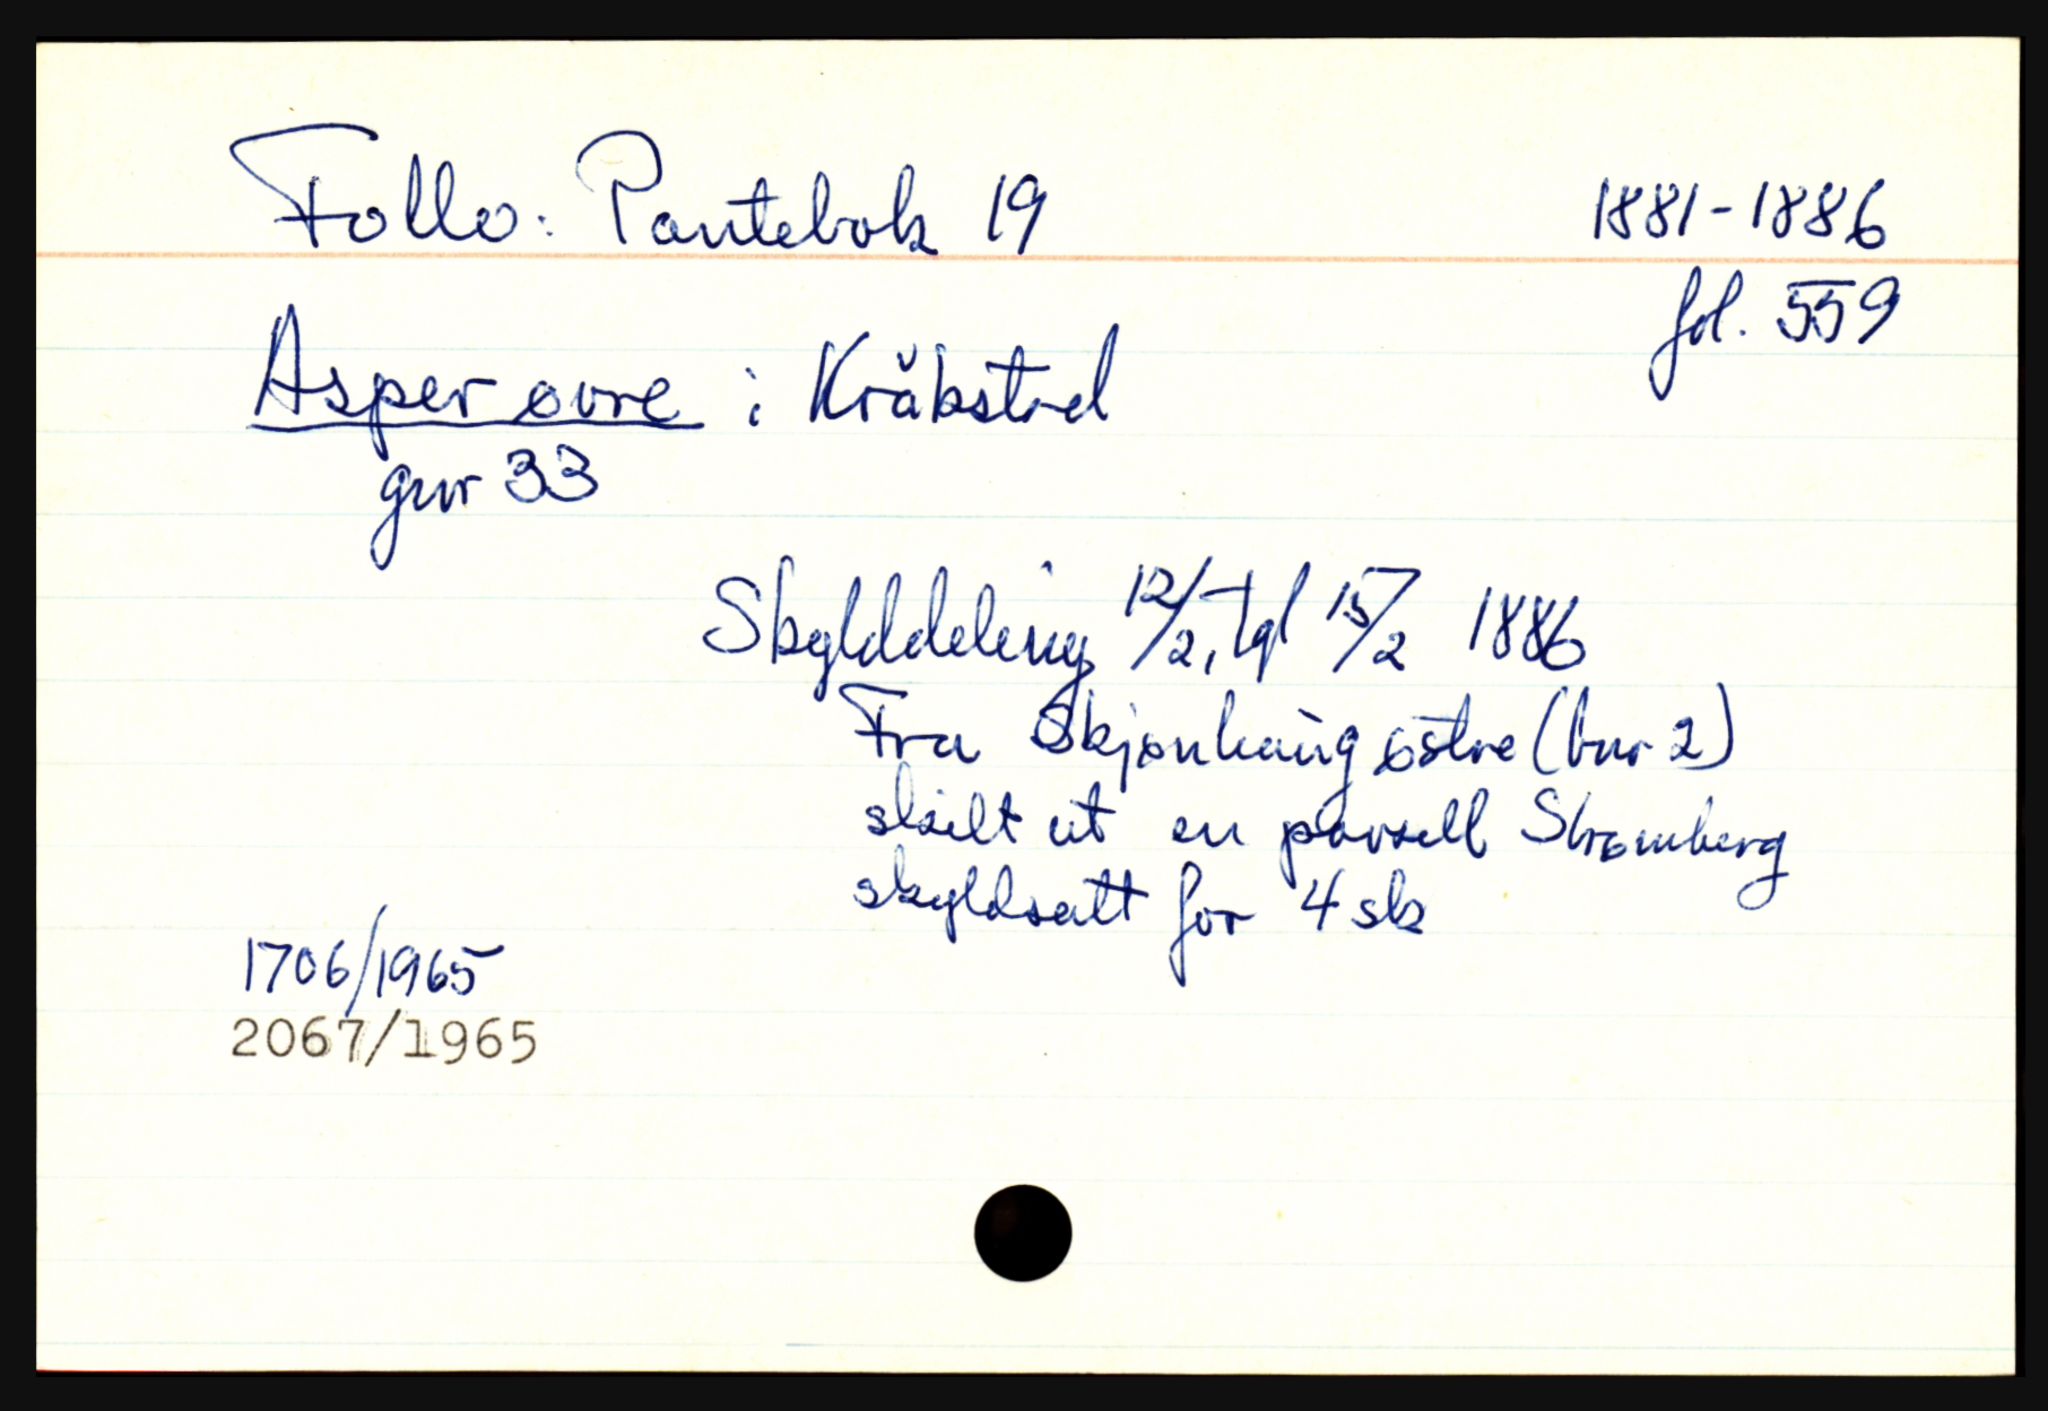 Follo: Pantebok 19 1881-1886
fol. 559
Asper øvre i Kråkstad
gnr 33
Skylddeling 12/2, tgl 15/2 1886
Fra Skjønhaug østre (bnr 2)
skilt ut en parsell Strømberg
skyldsatt for 4 sk
1706/1965
2067/1965